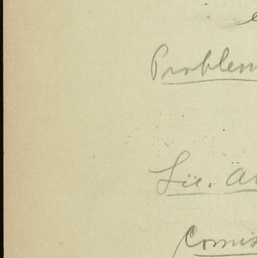 Problem
Lic. A
Comis